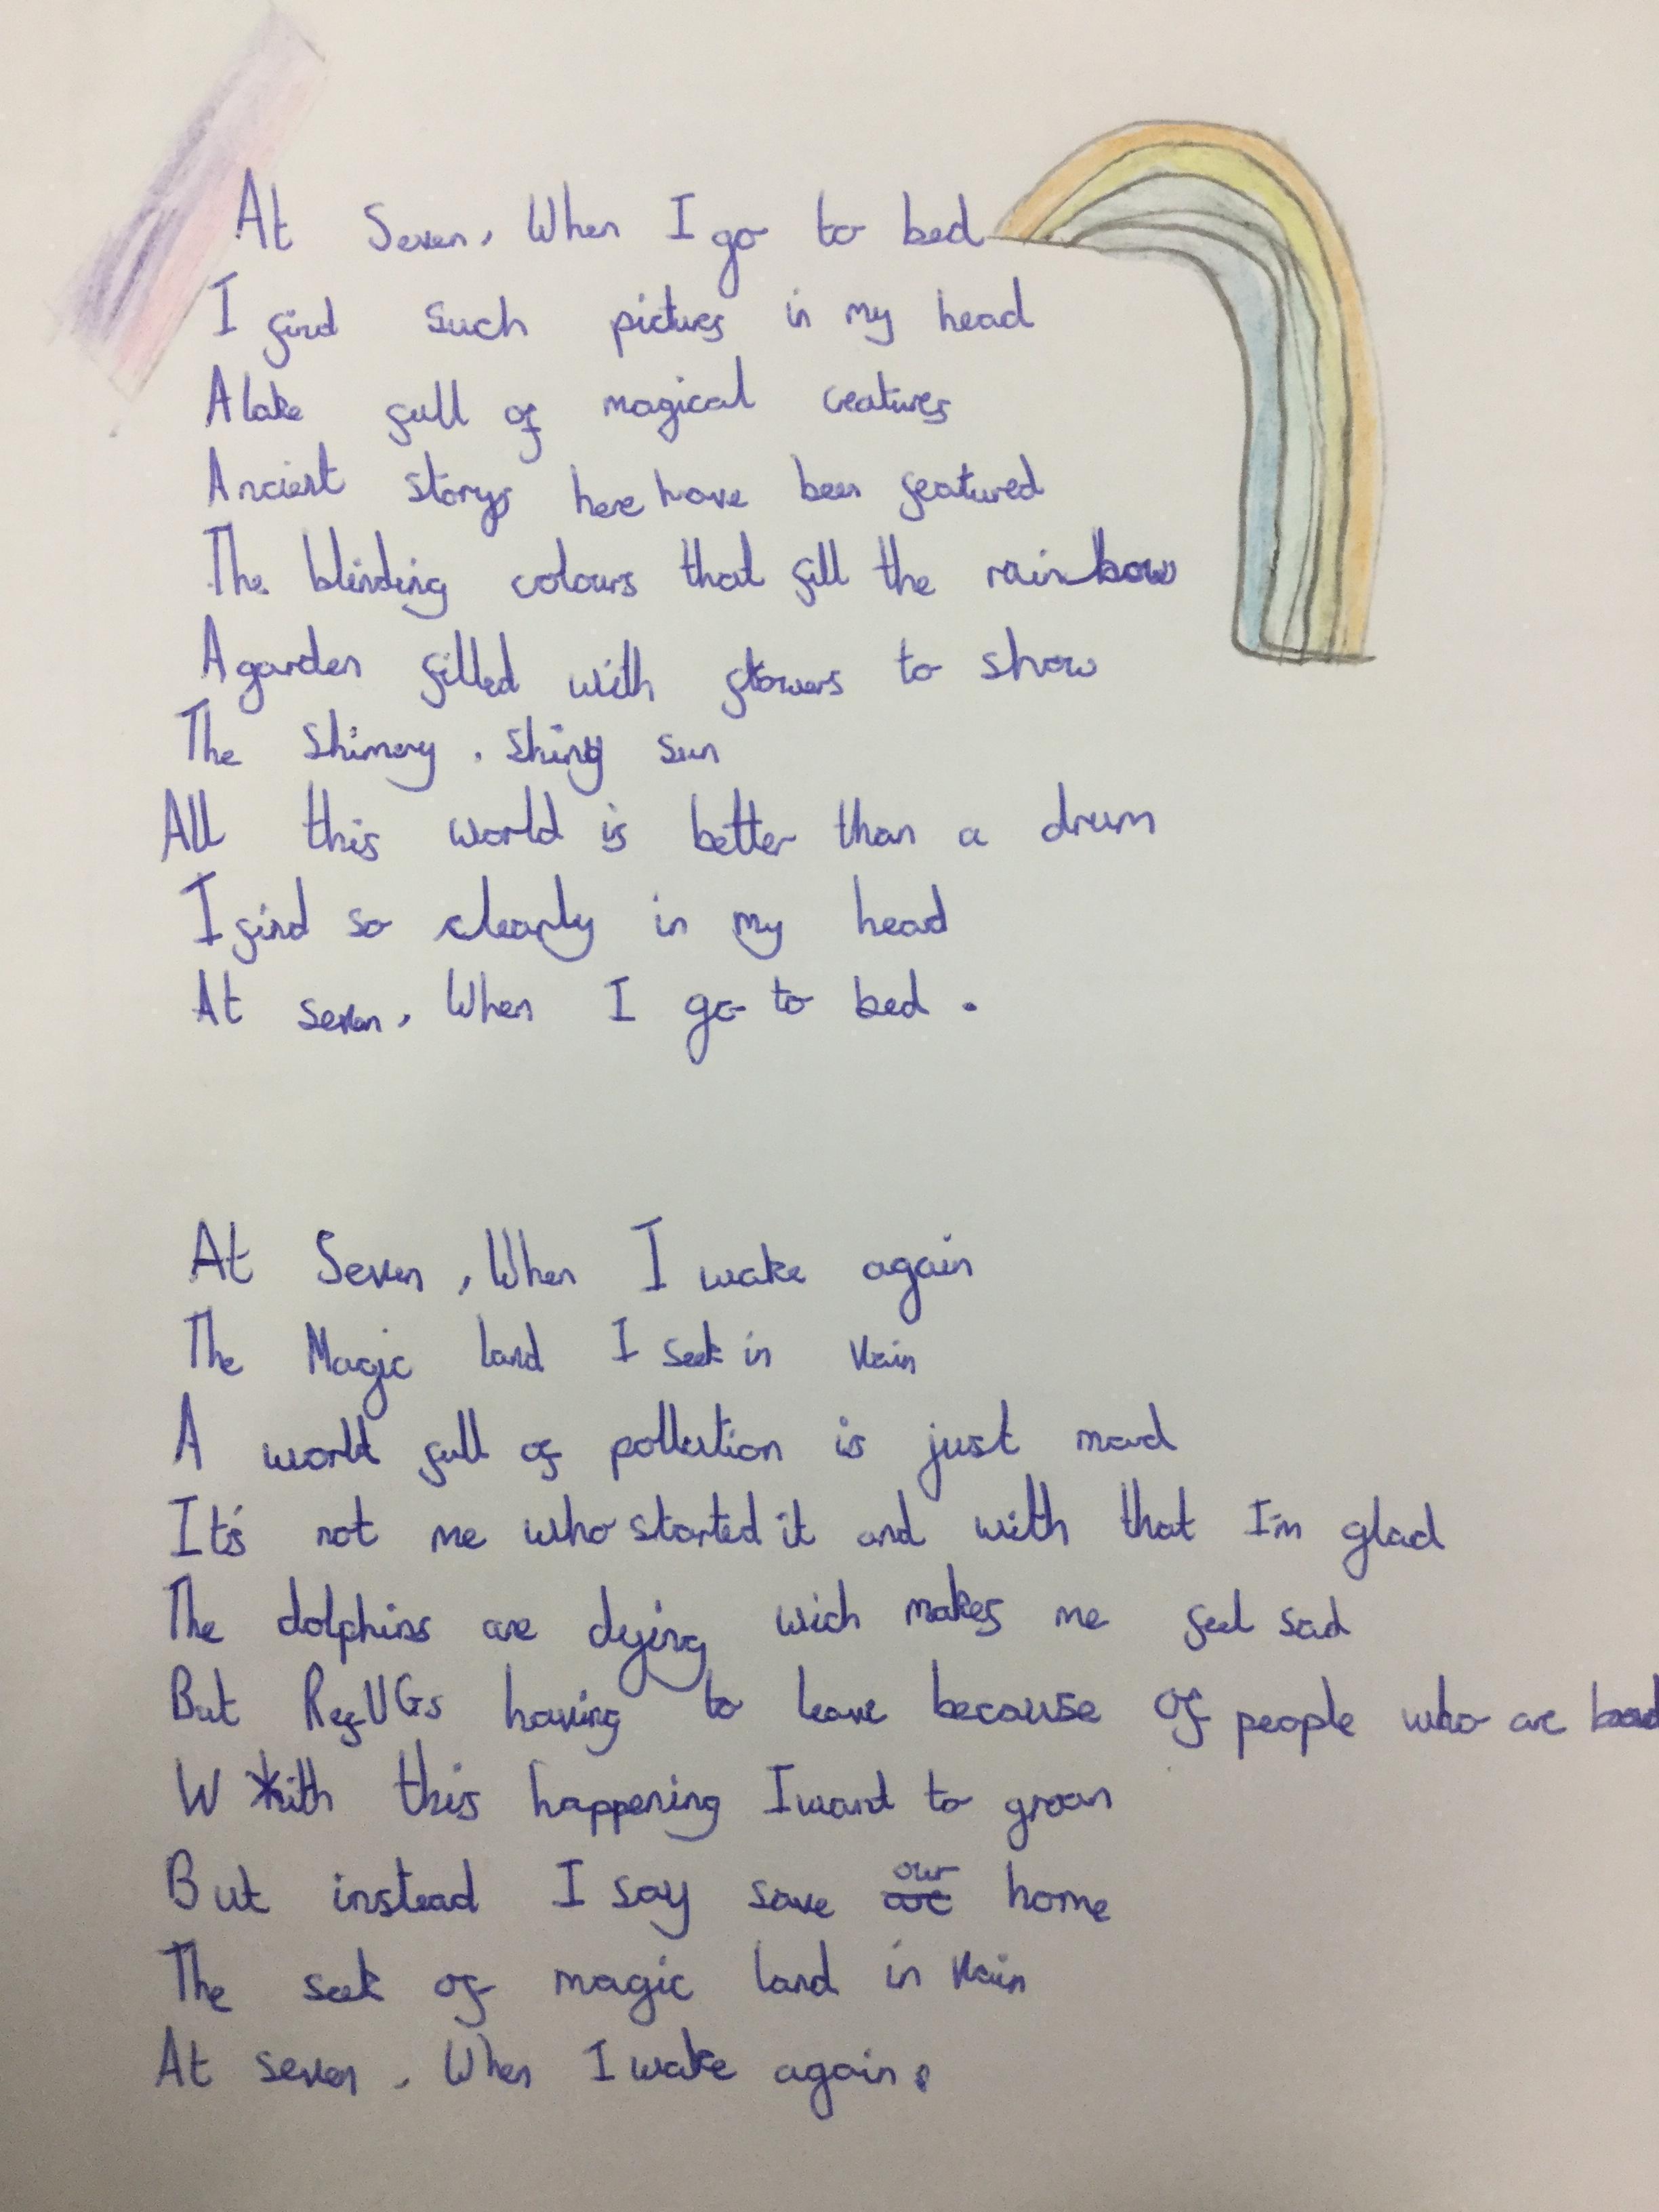 At Seven, When I go to bed
I find such pictures in my head
A lake full of magical creatures
Ancient storys here have been featured
The blinding colours that fill the rainbow
A garden filled with flowers to show
The Shimery, Shiny sun
All this world is better than a drum
I find so clearly in my head
At seven, When I go to bed.
At Seven, When I wake again
The Magic land I seek in Vain
A world full of pollution is just mad
It's not me who started it and with that I'm glad
The dolphins are dying wich makes me feel sad
But RefUGs having to leave because of people who are bad
With this happening I want to groan
But instead I say save our home
The seek of magic land in Vain
At seven, When I wake again.